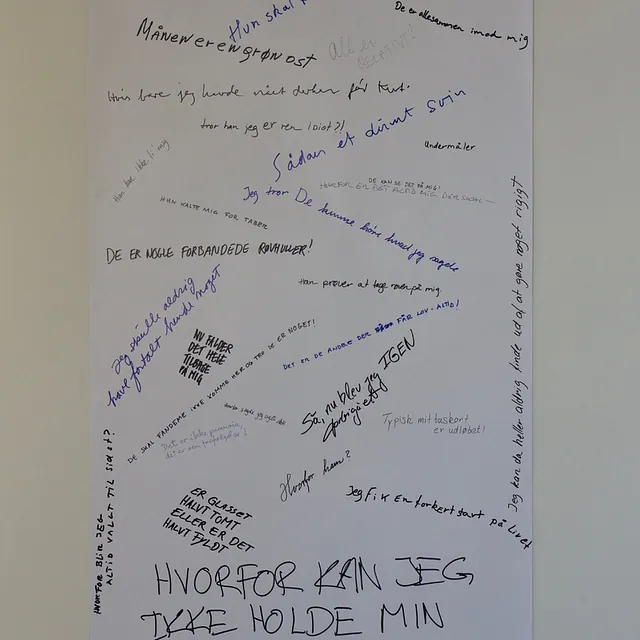 Hun skal
De er allesammen imod mig
Månen er en grøn ost
Alt er
Hvis bare jeg havde vidst det før
tror han jeg er ren idiot?!
Sådan et dumt svin
Undermåler
Han kan ikke li mig
DE KAN SE DET PÅ MIG!
HVORFOR ER DET ALTID MIG DER SKAL
HUN KALTE MIG FOR TABER
Jeg tror De kunne høre hvad jeg sagde
DE ER NOGLE FORBANDEDE RØVHULLER!
Han prøver at tage røven på mig
Jeg skulle aldrig
have fortalt hende noget
NU FALDER
DET HELE
TILBAGE
PÅ MIG
DET ER DE ANDRE DER FÅR LOV - ALTID!
DE SKAL FANDEME IKKE KOMME HER OG TRO DE ER NOGET!
Så, nu blev jeg IGEN
Typisk mit taskort
er udløbet!
Det er ikke paranoia,
det er
Hvorfor ham?
Jeg fik en forkert start på livet
Jeg kan da heller aldrig finde ud af at gøre noget rigigt
HVORFOR BLIR JEG
ALTID VALGT TIL SIDST?
ER GLASSET
HALVT TOMT
ELLER ER DET
HALVT FYLDT
HVORFOR KAN JEG
IKKE HOLDE MIN